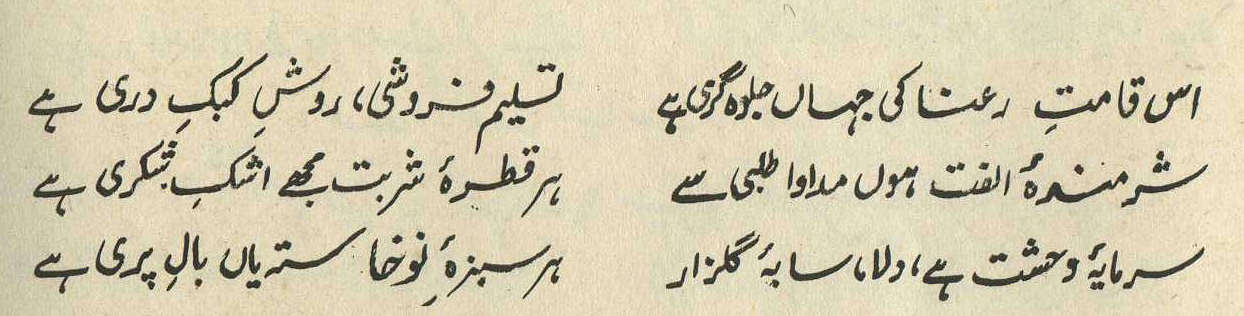 اس قامتِ رعنا کی جہاں جلوہ گری ہے تسلیم فروشی، روشِ کبکِ دری ہے
شرمندۂ الفت ہوں مداوا طلبی سے ہر قطرۂ شربت مجھے اشکِ شکری ہے
سرمایۂ وحشت ہے، دلا، سایۂ گلزار ہر سبزۂ نوخاستہ یاں بالِ پری ہے